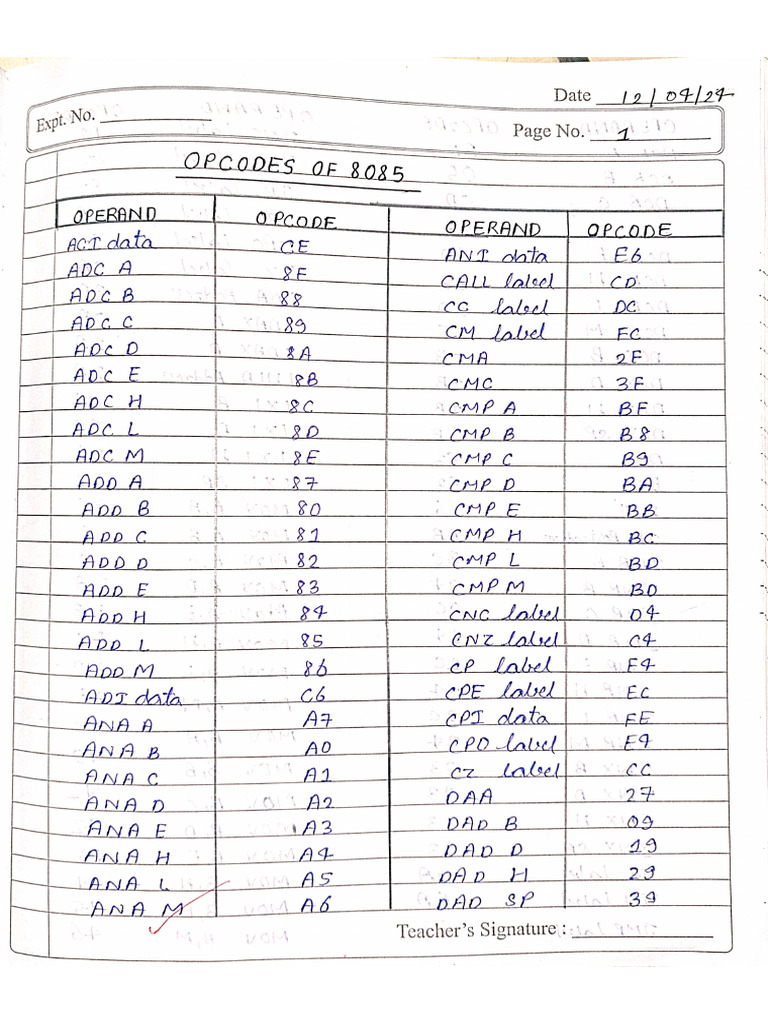 Date 12/04/24
Expt. No.
Page No. 1
OPCODES OF 8085
OPERAND OPCODE OPERAND OPCODE
ACI data CE ANI data E6
ADC A 8F CALL label CD
ADC B 88 CC label DC
ADC C 89 CM label FC
ADC D 8A CMA 2F
ADC E 8B CMC 3F
ADC H 8C CMP A BF
ADC L 8D CMP B B8
ADC M 8E CMP C B9
ADD A 87 CMP D BA
ADD B 80 CMP E BB
ADD C 81 CMP H BC
ADD D 82 CMP L BD
ADD E 83 CMP M BD
ADD H 84 CNC label D4
ADD L 85 CNZ label C4
ADD M 86 CP label F4
ADI data C6 CPE label EC
ANA A A7 CPI data FE
ANA B A0 CPO label E4
ANA C A1 CZ label CC
ANA D A2 DAA 27
ANA E A3 DAD B 09
ANA H A4 DAD D 19
ANA L A5 DAD H 29
ANA M A6 DAD SP 39
Teacher's Signature :